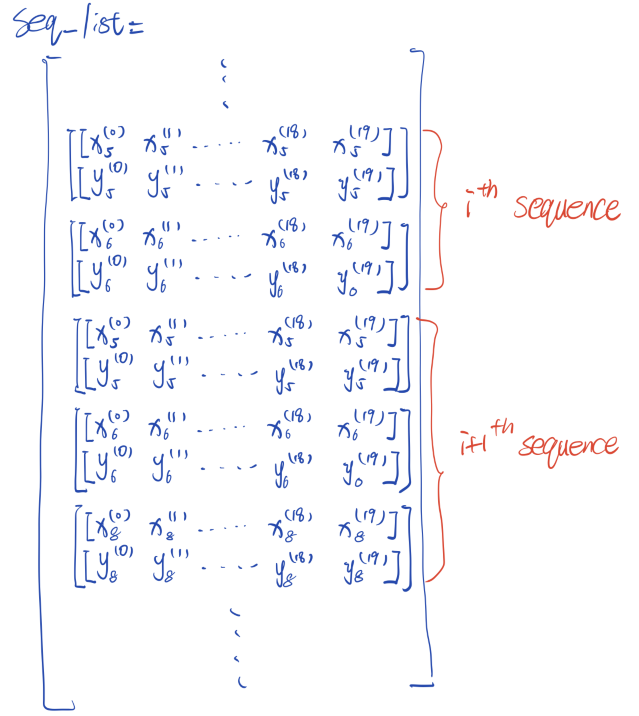 Seq_list=
[[x_5^(0) x_5^(1) ...... x_5^(18) x_5^(19)]
[y_5^(0) y_5^(1) ...... y_5^(18) y_5^(19)]]
[[x_6^(0) x_6^(1) ...... x_6^(18) x_6^(19)]
[y_6^(0) y_6^(1) ...... y_6^(18) y_0^(19)]]
i^th sequence
[[x_5^(0) x_5^(1) ...... x_5^(18) x_5^(19)]
[y_5^(0) y_5^(1) ...... y_5^(18) y_5^(19)]]
[[x_6^(0) x_6^(1) ...... x_6^(18) x_6^(19)]
[y_6^(0) y_6^(1) ...... y_6^(18) y_0^(19)]]
[[x_8^(0) x_8^(1) ...... x_8^(18) x_8^(19)]
[y_8^(0) y_8^(1) ...... y_8^(18) y_8^(19)]]
i+1^th sequence